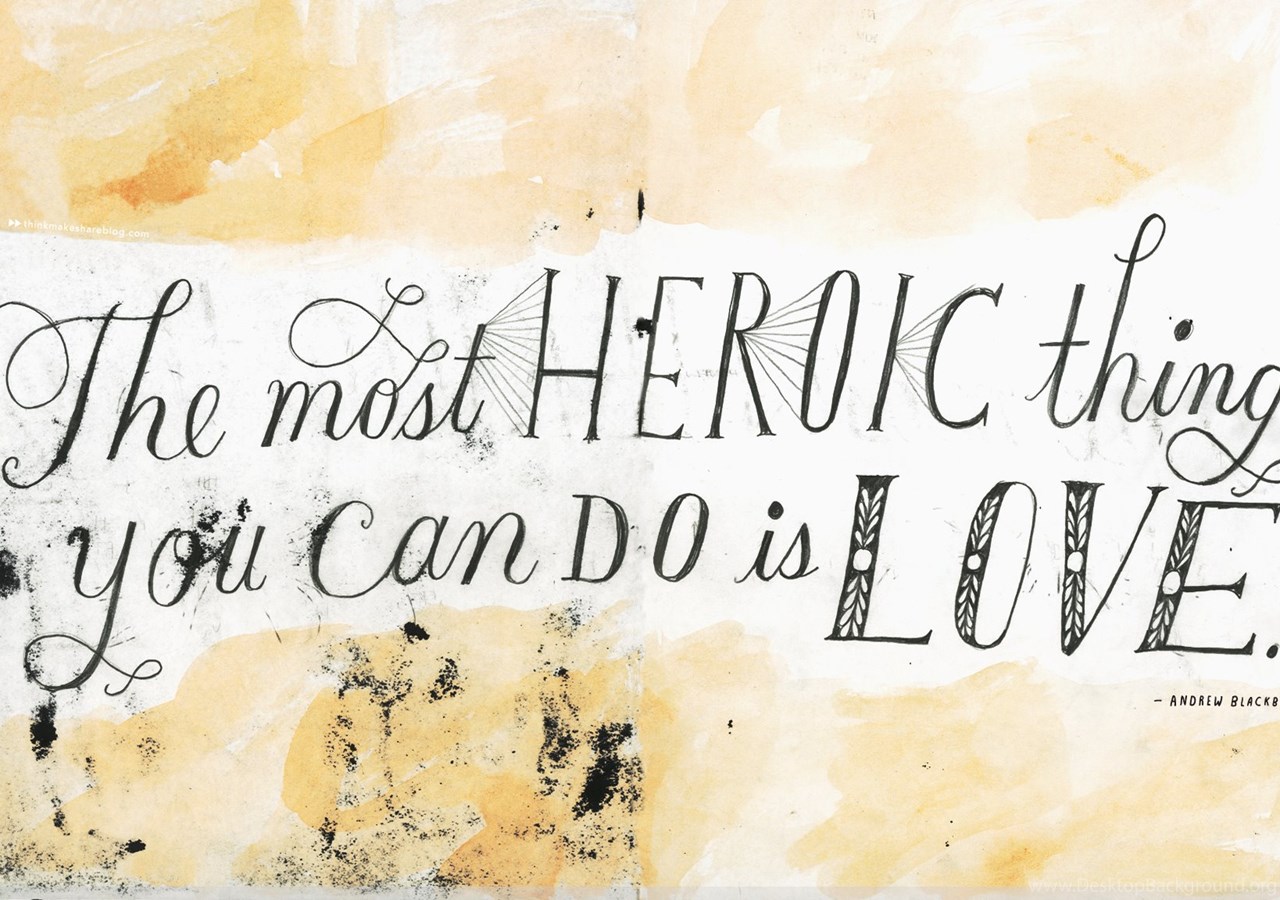 ▸▸ thinkmakeshareblog.com
The most HEROIC thing
you can DO is LOVE.
– ANDREW BLACKB
www.DesktopBackground.org